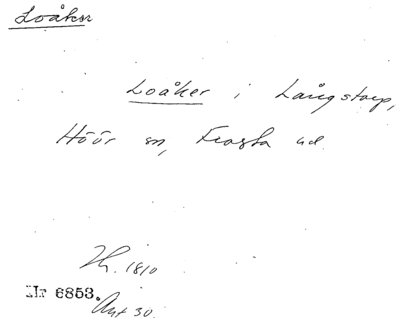 Loåker
Loåker i Långstorp,
Höör sn, Frosta hd.
Th. 1810
Nr 6853.
Akt 30.